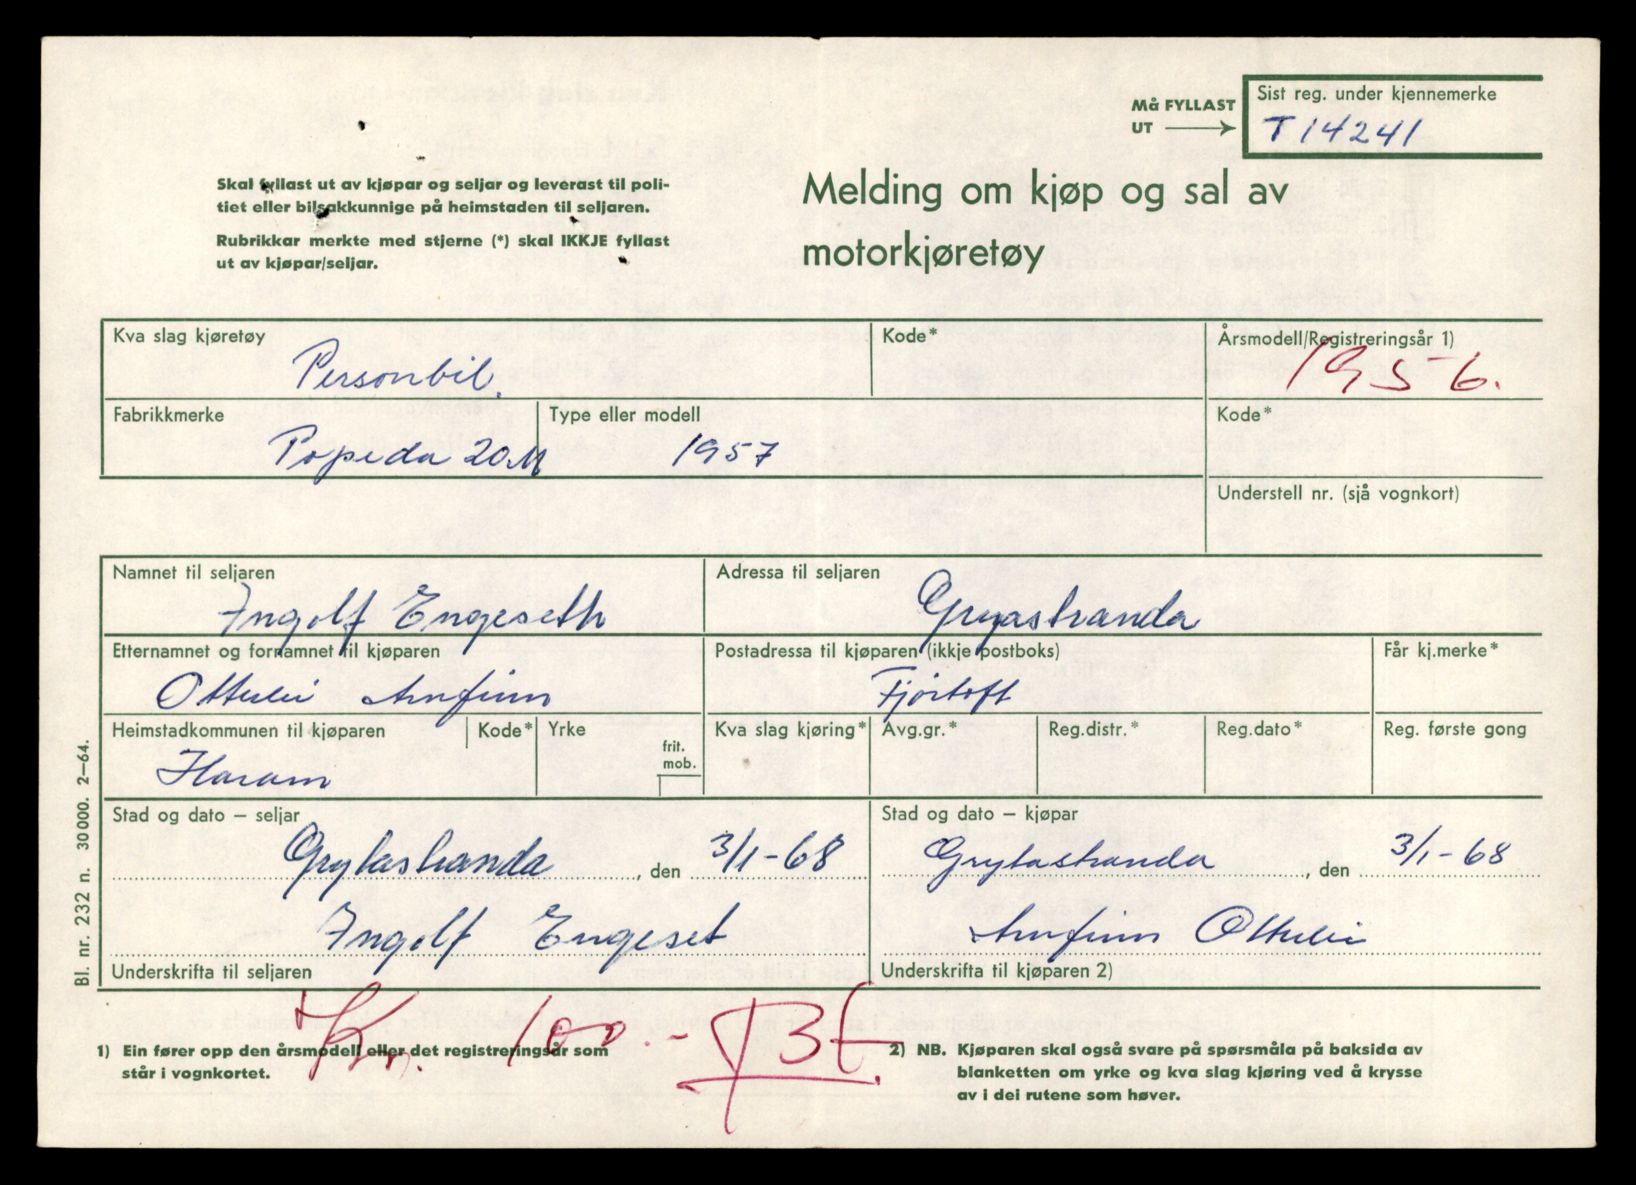 Må FYLLAST
UT
Sist reg. under kjennemerke
T 14241
Skal fyllast ut av kjøpar og seljar og leverast til poli-
tiet eller bilsakkunnige på heimstaden til seljaren.
Rubrikkar merkte med stjerne (*) skal IKKJE fyllast
ut av kjøpar/seljar.
Melding om kjøp og sal av
motorkjøretøy
Kva slag kjøretøy
Personbil.
Kode*
Årsmodell/Registreringsår 1)
1956.
Fabrikkmerke
Popeda 20 M
Type eller modell
1957
Kode*
Understell nr. (sjå vognkort)
Namnet til seljaren
Ingolf Engeseth
Adressa til seljaren
Gryastranda
Etternamnet og fornamnet til kjøparen
Otterlei Arnfinn
Postadressa til kjøparen (ikkje postboks)
Fjörtoft
Får kj.merke*
Heimstadkommunen til kjøparen
Haram
Kode*
Yrke
frit.
mob.
Kva slag kjøring*
Avg.gr.*
Reg.distr.*
Reg.dato*
Reg. første gong
Stad og dato – seljar
Grytastranda, den 3/1-68
Ingolf Engeset
Underskrifta til seljaren
Stad og dato – kjøpar
Grytastranda, den 3/1-68
Arnfinn Otterlei
Underskrifta til kjøparen 2)
Kr. 100.-
1) Ein fører opp den årsmodell eller det registreringsår som
står i vognkortet.
2) NB. Kjøparen skal også svare på spørsmåla på baksida av
blanketten om yrke og kva slag kjøring ved å krysse
av i dei rutene som høver.
Bl. nr. 232 n. 30 000. 2–64.